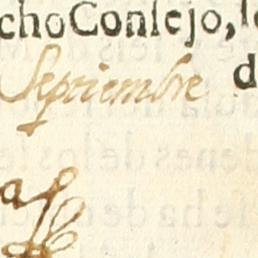 cho Consejo, l
Septiembre d